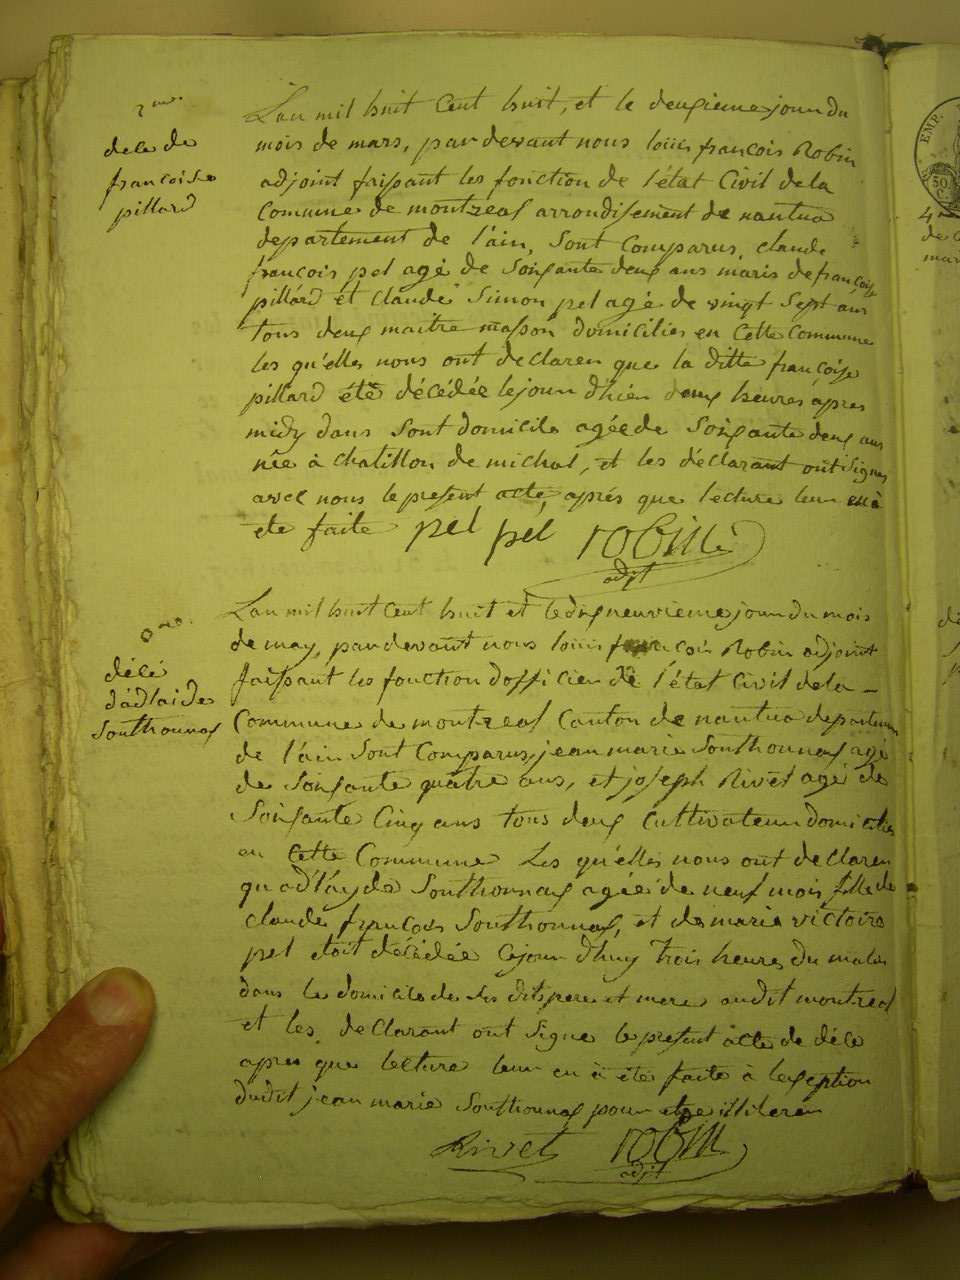 2me
décè de
françoise
pillard
L'an mil huit Cent huit, et le deuxieme jour du
mois de mars, par devant nous louis françois Robin
adjoint faissant les fonction de l'état Civil de la
Commune de montreal arrondisement de nantua
departement de l'ain, sont Comparus, claude
françois pel agé de soixante deux ans maris de françoise
pillard et claude simon pel agé de vingt sept ans
tous deux maitre masson domiciliés en Cette Commune
les qu'elles nous ont declaren que la ditte françoise
pillard été décédée le jour d'hier deux heures apres
midy dans sont domicile agée de soixante deux ans
née à chatillon de michal, et les déclarant ont signes
avec nous le present acte, aprés que lecture leur en à
ete faite pel pel robin
adjt
3me
décè
d'adlaide
Southonnax
L'an mil huit Cent huit et le dix neuvieme jour du mois
de may, par devant nous louis françois Robin adjoint
faissant les fonction d'officier de l'état Civil de la
Commune de montreal Canton de nantua departement
de l'ain sont Comparus, jean marie Southonnax agé
de soixante quatre ans, et joseph Rivet agé de
soixante Cinq ans tous deux Cultivateur domiciliés
en Cette Commune Les qu'elles nous ont declaren
qu'adlayde Southonnax agée de neuf mois fille de
claude françois Southonnax, et de marie victoire
pel étoit décédée Cejour d'huy trois heures du matin
dans le domicile de ses dits pere et mere audit montreal
et les declarant ont signe le present acte de décè
apres que lecture leur en à été faite à lexseption
dudit jean marie Southonnax pour etre illiteren
Rivet robin
adjt
EMP.
50
C.
4me